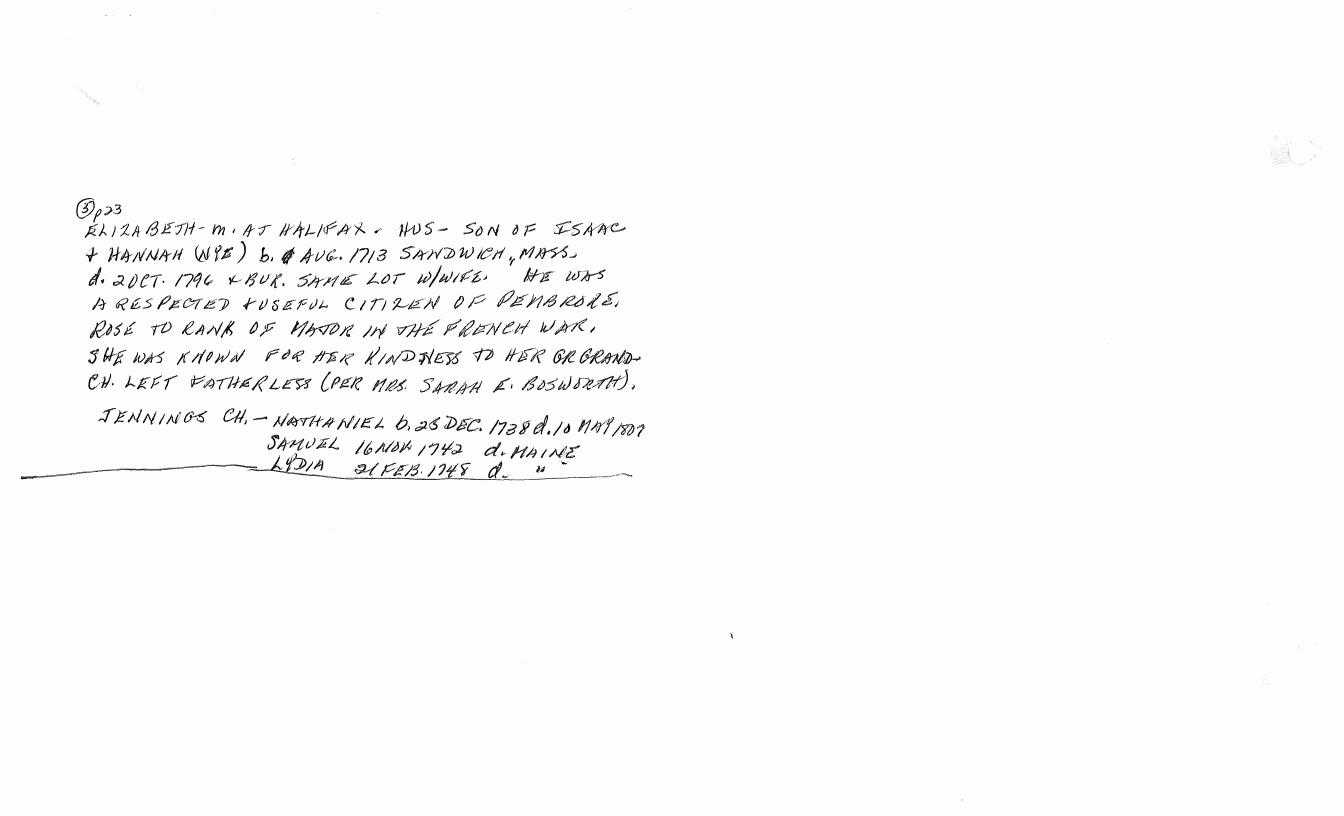 ③ p23
ELIZABETH - m. AT HALIFAX - HUS - SON OF ISAAC
+ HANNAH (NYE) b. AUG. 1713 SANDWICH, MASS.
d. 2 OCT. 1796 & BUR. SAME LOT W/WIFE. HE WAS
A RESPECTED & USEFUL CITIZEN OF PEMBROKE.
ROSE TO RANK OF MAJOR IN THE FRENCH WAR.
SHE WAS KNOWN FOR HER KINDNESS TO HER GR GRAND-
CH. LEFT FATHERLESS (PER MRS. SARAH E. BOSWORTH).
JENNINGS CH. - NATHANIEL b. 25 DEC. 1738 d. 10 MAY 1807
SAMUEL 16 NOV. 1742 d. MAINE
LYDIA 21 FEB. 1748 d. "